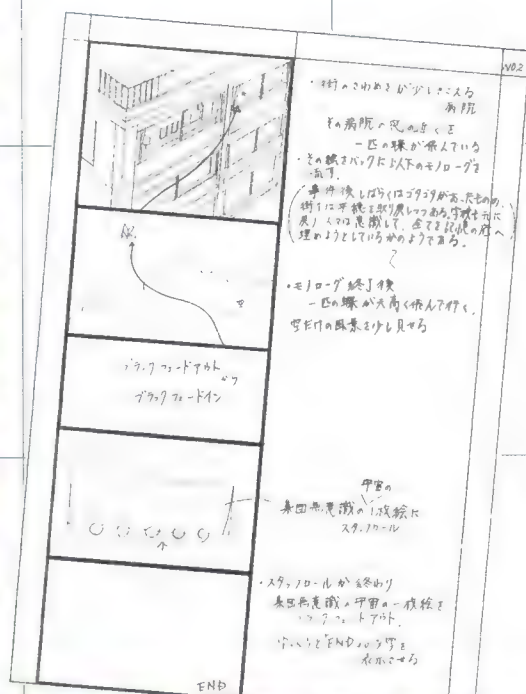 NO.2
・街のざわめきが少しきこえる
病院
その病院の窓の近くを
一匹の蝶が飛んでいる
・その蝶をバックに以下のモノローグを
流す。
事件後しばらくはゴタゴタがあったものの、
街は平穏を取り戻しつつある。
人々は意識して、全てを記憶の底へ
埋めようとしているかのようである。
・モノローグ終了後
一匹の蝶が天高く飛んで行く。
空だけの風景を少し見せる
ブラックフェードアウト
ブラックフェードイン
宇宙の
集団無意識の1枚絵に
スタッフロール
・スタッフロールが終わり
集団無意識の宇宙の一枚絵を
フェードアウト。
「END」の文字を
表示させる
END